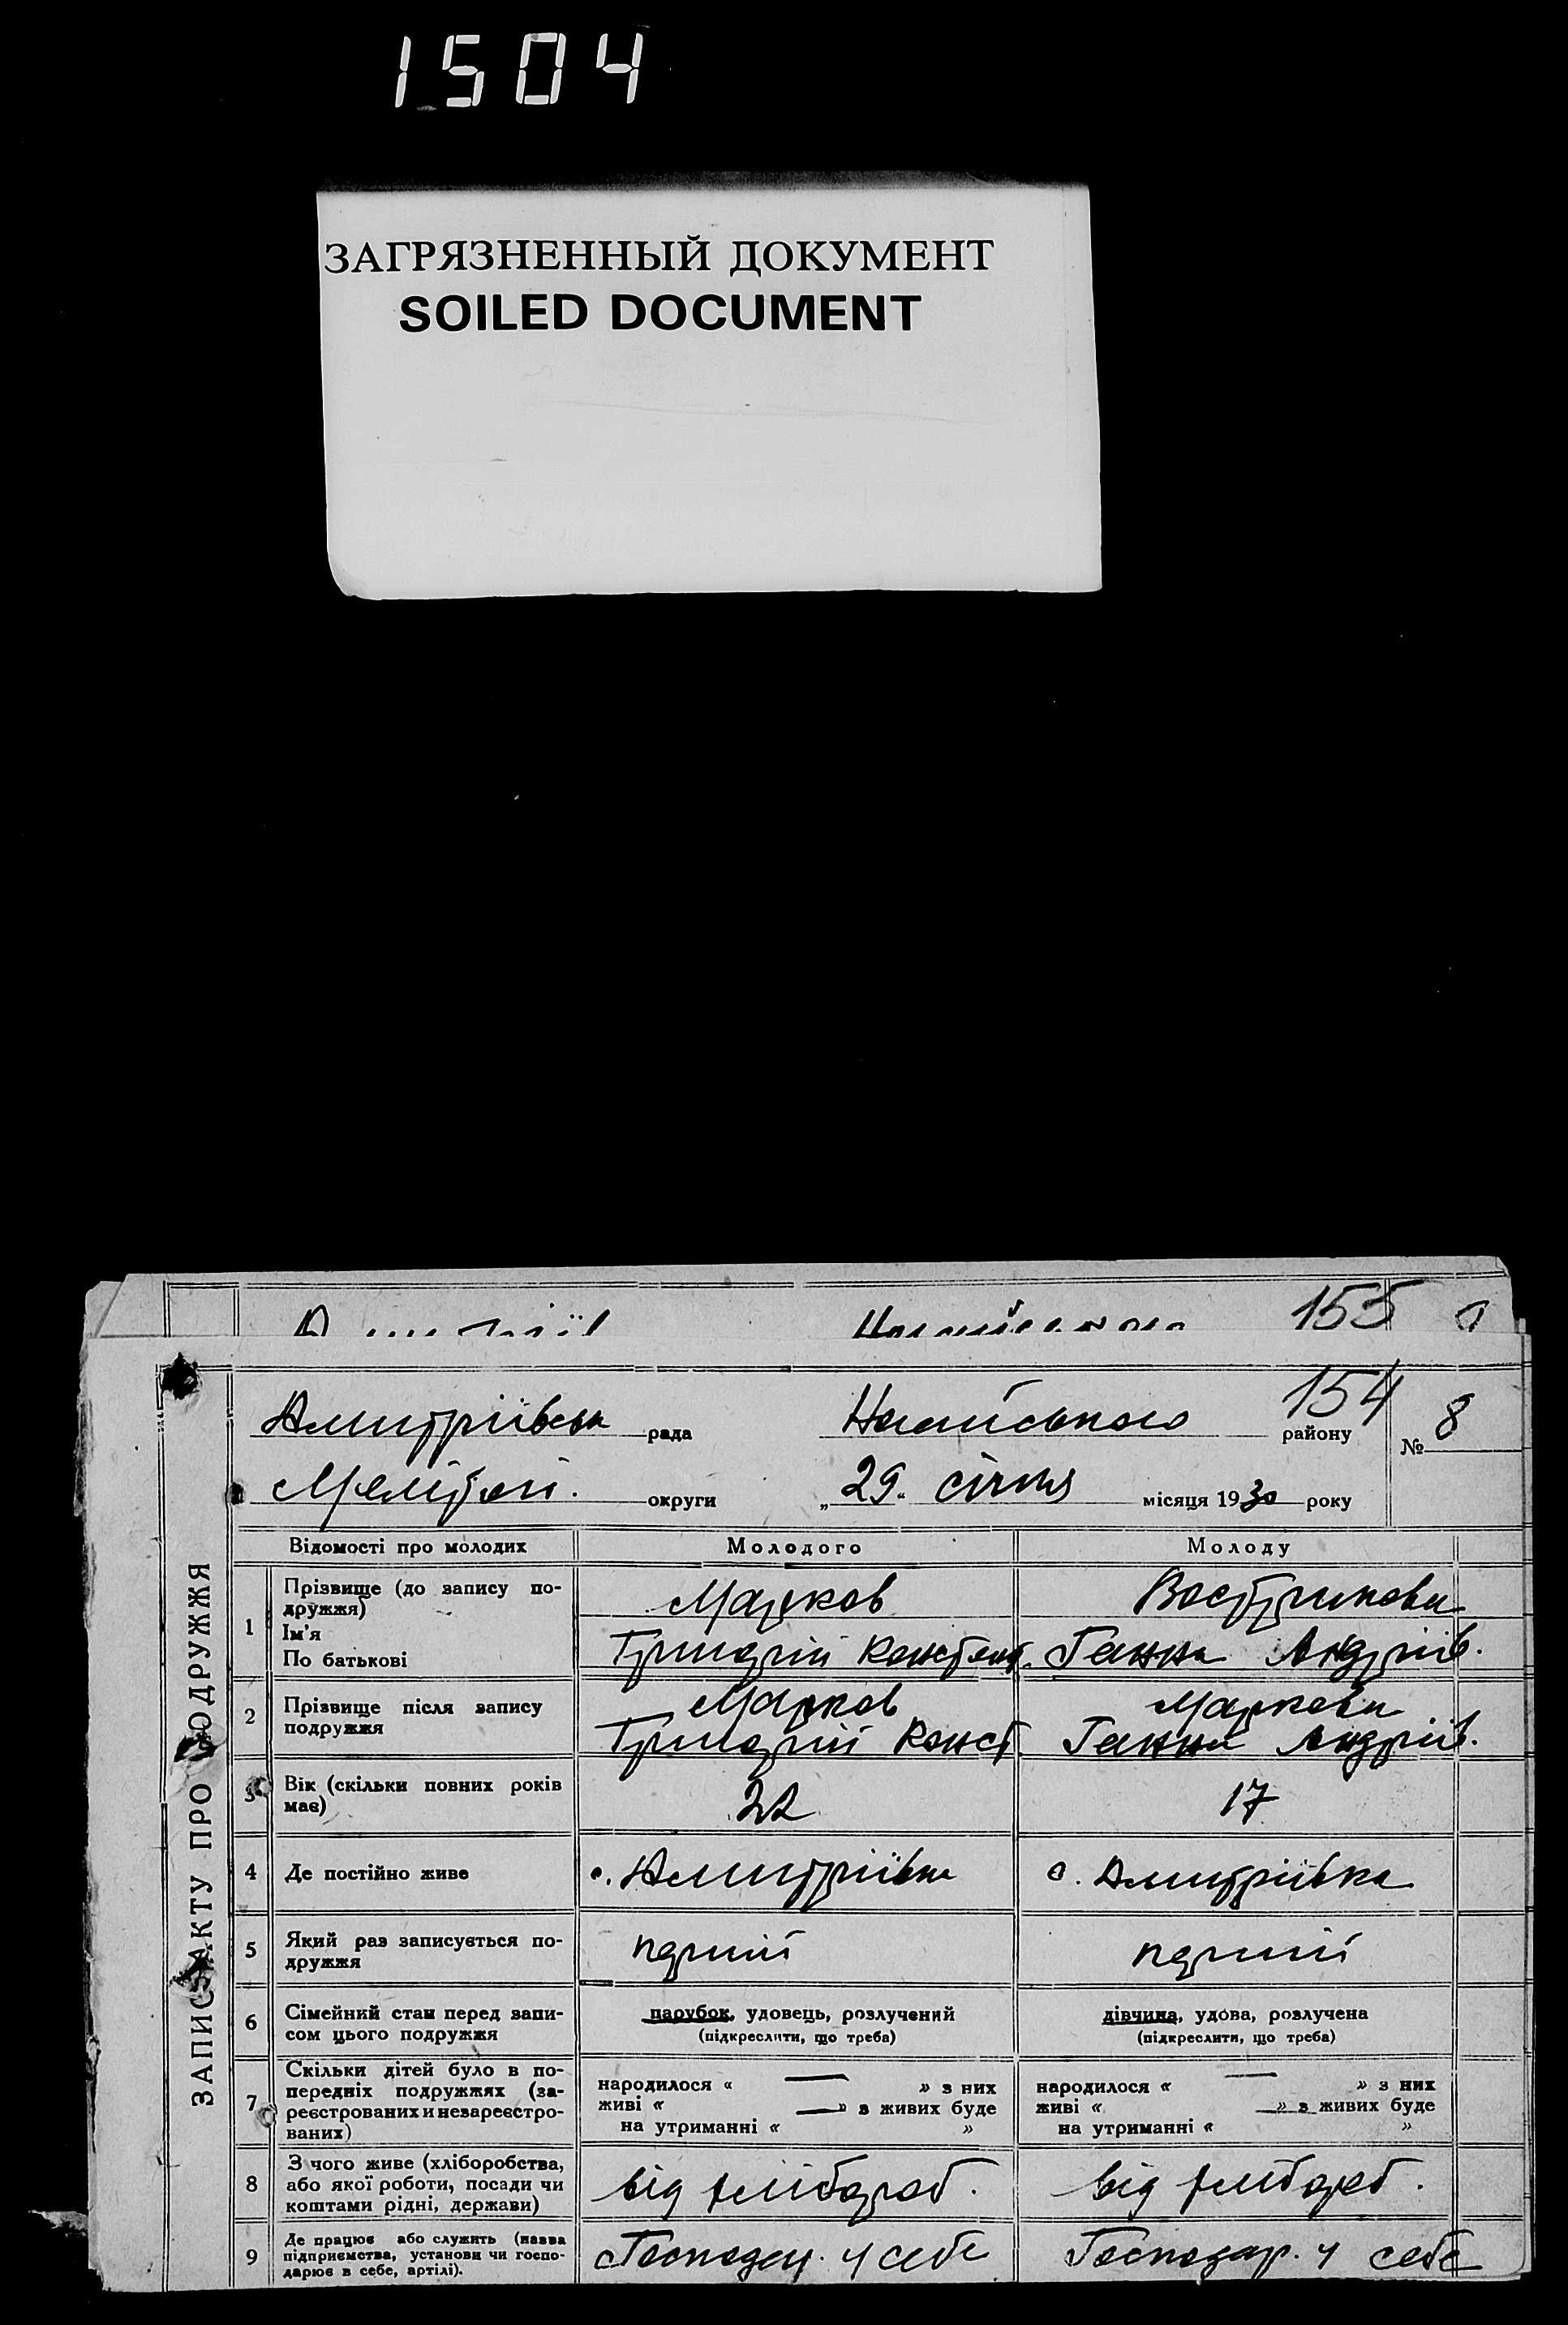 1504
ЗАГРЯЗНЕННЫЙ ДОКУМЕНТ
SOILED DOCUMENT
155
154
Дмитріївська рада Ногайського району № 8
Мелітоп. округи „29" січня місяця 1930 року
ЗАПИС АКТУ ПРО ПОДРУЖЖЯ
Відомості про молодих Молодого Молоду
1 Прізвище (до запису по-
дружжя) Марков Вострикова
Ім'я
По батькові Григорій Констант. Ганна Андріїв.
2 Прізвище після запису
подружжя Марков Маркова
Григорій Конст. Ганна Андріїв.
3 Вік (скільки повних років
має) 22 17
4 Де постійно живе с. Дмитріївка с. Дмитріївка
5 Який раз записується по-
дружжя перший перший
6 Сімейний стан перед запи-
сом цього подружжя парубок, удовець, розлучений дівчина, удова, розлучена
(підкреслити, що треба) (підкреслити, що треба)
7 Скільки дітей було в по-
передніх подружжях (за-
реєстрованих и незареєстро-
ваних)
народилося « — » з них народилося « — » з них
живі « — » з живих буде живі « — » з живих буде
на утриманні « » на утриманні « »
8 З чого живе (хліборобства,
або якої роботи, посади чи
коштами рідні, держави) від хлібороб. від хлібороб.
9 Де працює або служить (назва
підприємства, установи чи госпо-
дарює в себе, артілі). Господар. у себе Господар. у себе